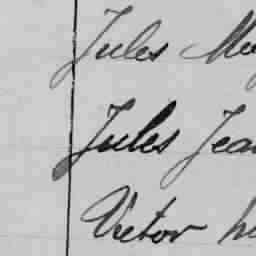 Jules
Jules Jean
Victor